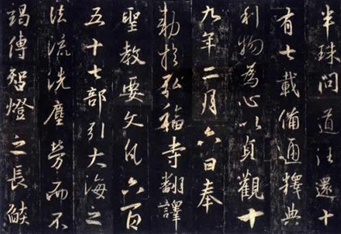 半珠問道往還十
有七載備通釋典
利物為心以貞觀十
九年二月六日奉
勑於弘福寺翻譯
聖教要文凡六百
五十七部引大海之
法流洗塵勞而不
竭傳智燈之長皦